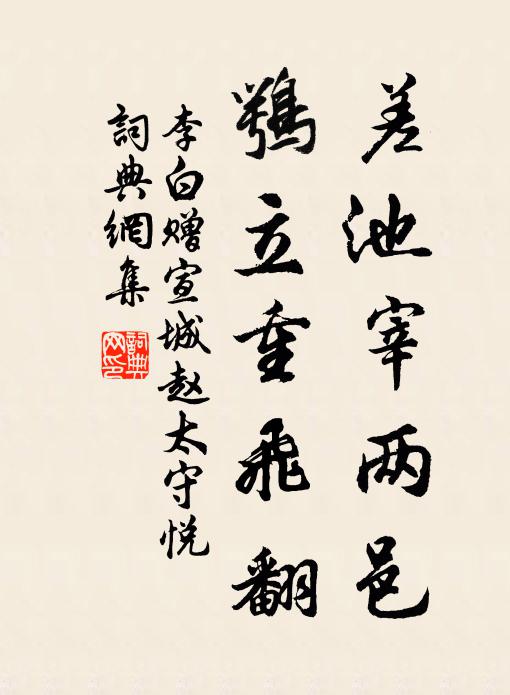 差池宰两邑
鶚立重飛翻
李白赠宣城赵太守悦
詞典網集
詞典網印